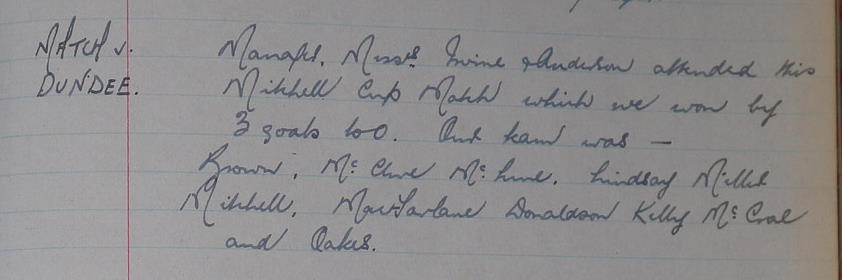 MATCH v.
DUNDEE.
Manager, Messrs Irvine & Anderson attended this
Mitchell Cup Match which we won by
3 goals to 0. Our team was —
Brown, Mc Clure Mc Lindsay Miller
Mitchell, MacFarlane Donaldson Kelly
and Oakes.